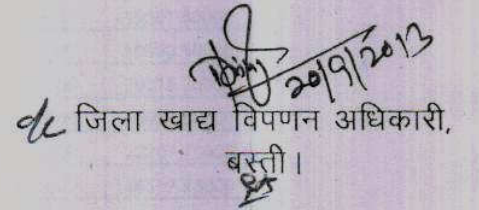 20/9/2013
जिला खाद्य विपणन अधिकारी,
बस्ती।